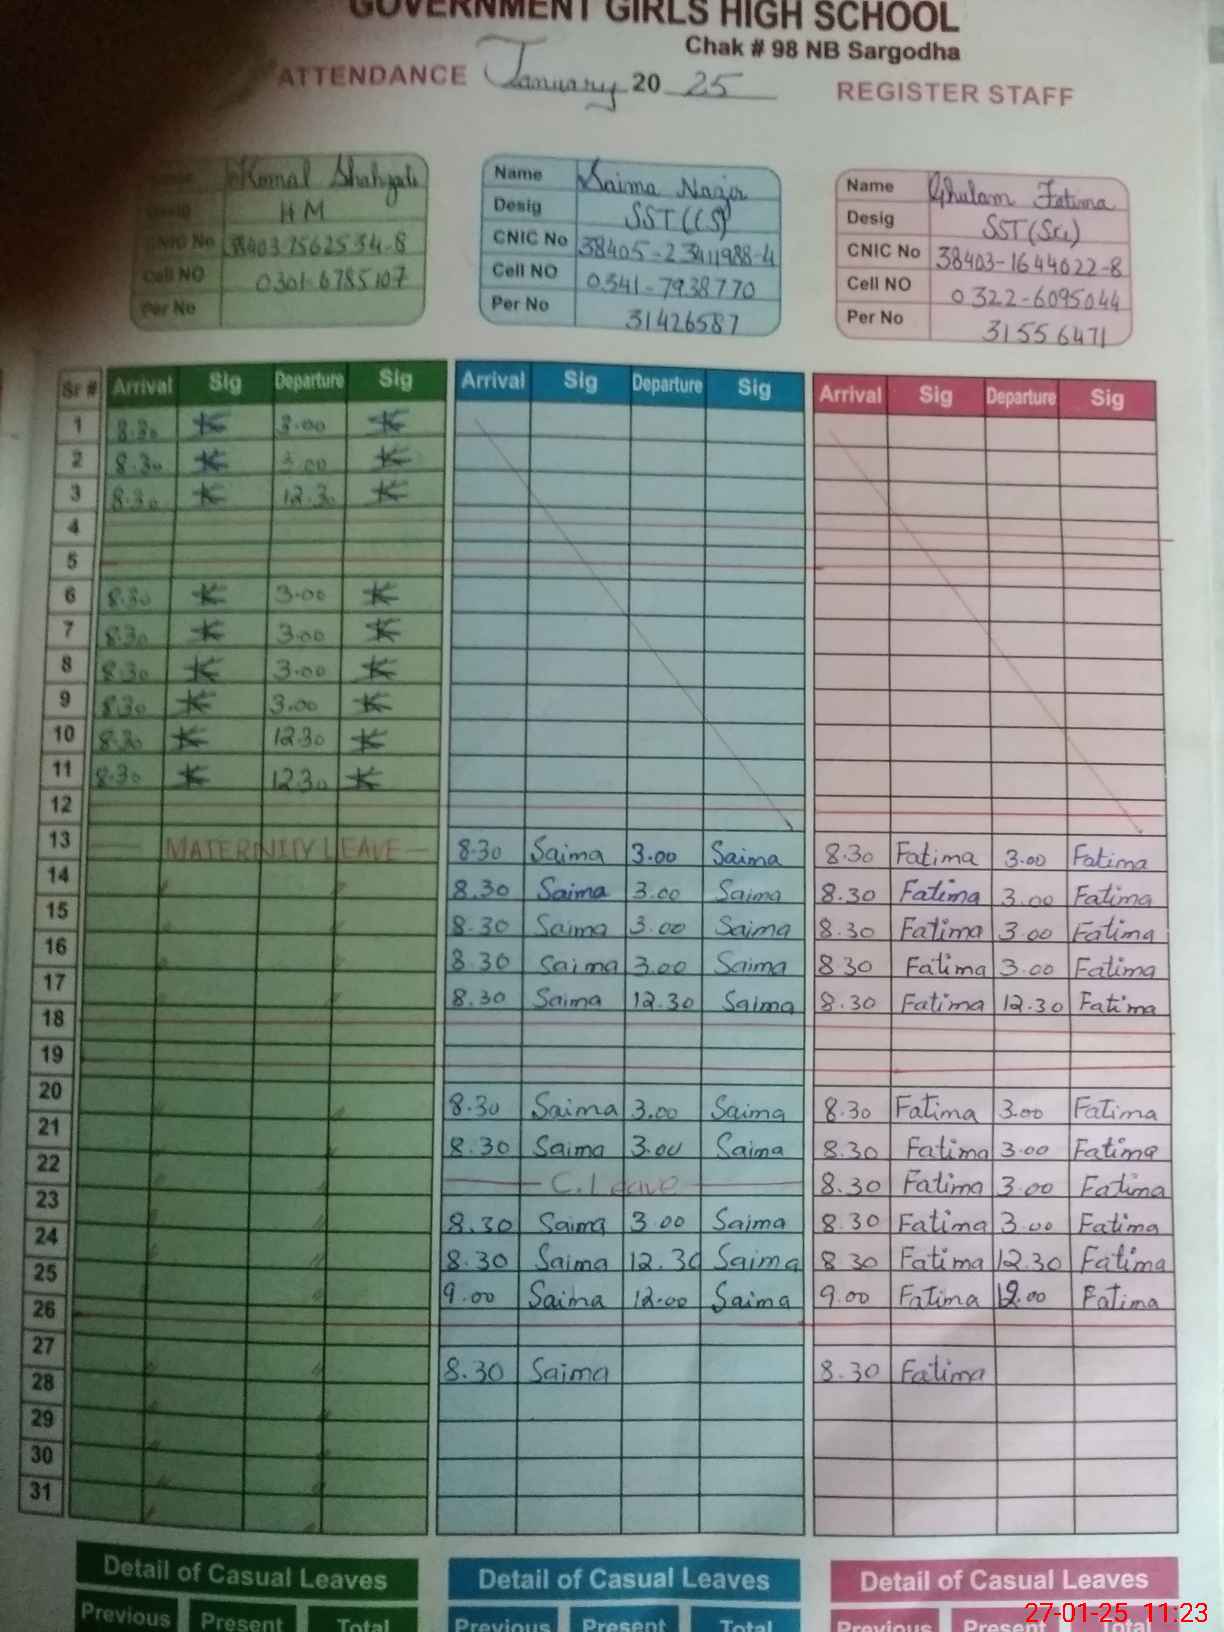 GOVERNMENT GIRLS HIGH SCHOOL
Chak # 98 NB Sargodha
ATTENDANCE January 20 25 REGISTER STAFF
Name Komal Shahzadi
Desig HM
CNIC No 38403 7562534-8
Cell NO 0301-6785107
Per No
Name Saima Nazir
Desig SST(CS)
CNIC No 38405-2341988-4
Cell NO 0341-7938770
Per No 31426587
Name Ghulam Fatima
Desig SST(Sci)
CNIC No 38403-1644022-8
Cell NO 0322-6095044
Per No 31556471
Sr # Arrival Sig Departure Sig Arrival Sig Departure Sig Arrival Sig Departure Sig
1 8.30 K 3.00 K
2 8.30 K 3.00 K
3 8.30 K 12.30 K
4
5
6 8.30 K 3.00 K
7 8.30 K 3.00 K
8 8.30 K 3.00 K
9 8.30 K 3.00 K
10 8.30 K 12.30 K
11 8.30 K 12.30 K
12
13 MATERNITY LEAVE 8.30 Saima 3.00 Saima 8.30 Fatima 3.00 Fatima
14 " " 8.30 Saima 3.00 Saima 8.30 Fatima 3.00 Fatima
15 " " 8.30 Saima 3.00 Saima 8.30 Fatima 3.00 Fatima
16 " " 8.30 Saima 3.00 Saima 8 30 Fatima 3.00 Fatima
17 " " 8.30 Saima 12.30 Saima 8.30 Fatima 12.30 Fatima
18
19
20 " " 8.30 Saima 3.00 Saima 8.30 Fatima 3.00 Fatima
21 " " 8.30 Saima 3.00 Saima 8.30 Fatima 3.00 Fatima
22 " " C.Leave 8.30 Fatima 3.00 Fatima
23 " " 8.30 Saima 3.00 Saima 8.30 Fatima 3.00 Fatima
24 " " 8.30 Saima 12.30 Saima 8 30 Fatima 12.30 Fatima
25 " " 9.00 Saima 12.00 Saima 9.00 Fatima 12.00 Fatima
26
27 " " 8.30 Saima 8.30 Fatima
28 " "
29 " "
30 " "
31 " "
Detail of Casual Leaves Detail of Casual Leaves Detail of Casual Leaves
Previous Present Total Previous Present Total Previous Present Total
27-01-25 11:23